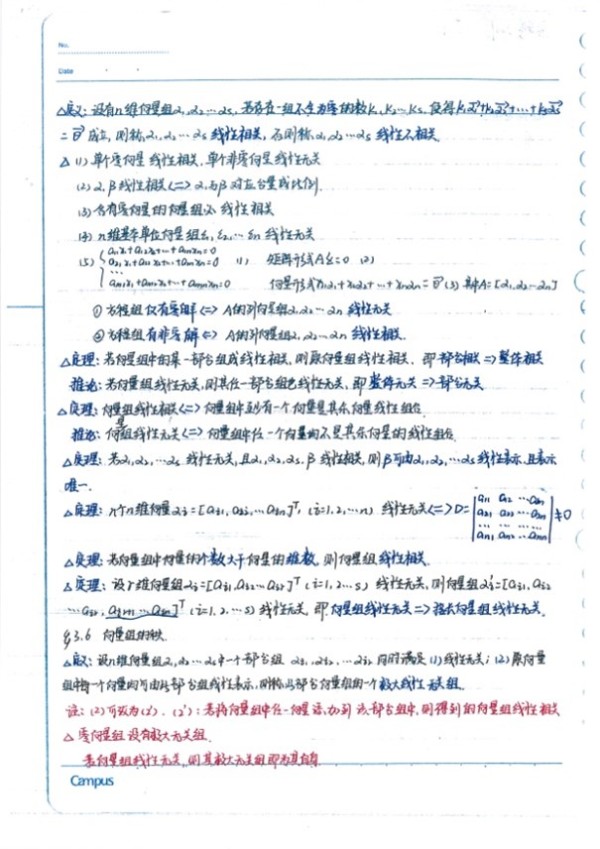 No.
Date
△定义: 设有n维向量组α₁,α₂…αs, 若存在一组不全为零的数k₁,k₂…ks, 使得k₁α₁+k₂α₂+…+ksαs
=0⃗ 成立, 则称α₁,α₂…αs 线性相关, 否则称α₁,α₂…αs 线性无关.
△ (1) 单个零向量 线性相关, 单个非零向量 线性无关
(2) α,β 线性相关<=> α,与β 对应分量成比例.
(3) 含有零向量的向量组必 线性 相关
(4) n维基本单位向量组ε₁,ε₂,…εn 线性无关
(5) { a₁₁x₁+a₁₂x₂+…+a₁nxn=0
a₂₁x₁+a₂₂x₂+…+a₂nxn=0 (1) 矩阵形式Ax=0 (2)
⋮
am₁x₁+am₂x₂+…+amnxn=0 向量形式x₁α₁+x₂α₂+…+xnαn=0⃗ (3) 其中A=[α₁,α₂…αn]
① 方程组 仅有零解<=> A的列向量组α₁,α₂…αn 线性无关
② 方程组 有非零解<=> A的列向量组α₁,α₂…αn 线性相关.
△定理: 若向量组中的某一部分组成线性相关, 则原向量组线性相关. 即部分相关=>整体相关
推论: 若向量组线性无关, 则其任一部分组也线性无关, 即整体无关=>部分无关
△定理: 向量组线性相关<=>向量组中至少有一个向量是其余向量线性组合.
推论: 向量组线性无关<=>向量组中任一个向量均不是其余向量的线性组合
△定理: 若α₁,α₂,…αs 线性无关, 且α₁,α₂,αs,β 线性相关, 则β可由α₁,α₂,…αs线性表示, 且表示
唯一.
△定理: n个n维向量αi=[ai₁,ai₂,…ain]ᵀ, (i=1,2,…n) 线性无关<=>D=|a₁₁ a₁₂ …a₁n
a₂₁ a₂₂ …a₂n
… … …
an₁ an₂ …ann| ≠0
△定理: 若向量组中向量的个数大于向量的维数, 则向量组 线性相关.
△定理: 设r维向量组αi=[ai₁,ai₂…air]ᵀ (i=1,2…s) 线性无关, 则向量组αi'=[ai₁,ai₂
…air, air+₁…ain]ᵀ (i=1,2,…s) 线性无关. 即向量组线性无关=>接长向量组线性无关.
§3.6 向量组的秩
△定义: 设n维向量组α₁,α₂…αs中一个部分组 αi₁,αi₂,…αir 同时满足 (1)线性无关; (2)原向量
组中每一个向量均可由此部分组线性表示, 则称此部分向量组的一个极大线性无关组.
注: (2)可改为(2'). (2'): 若将向量组中任一向量添加到该部分组中, 则得到的向量组线性相关
△ 零向量组 没有极大无关组.
若向量组线性无关, 则其极大无关组即为其自身
Campus